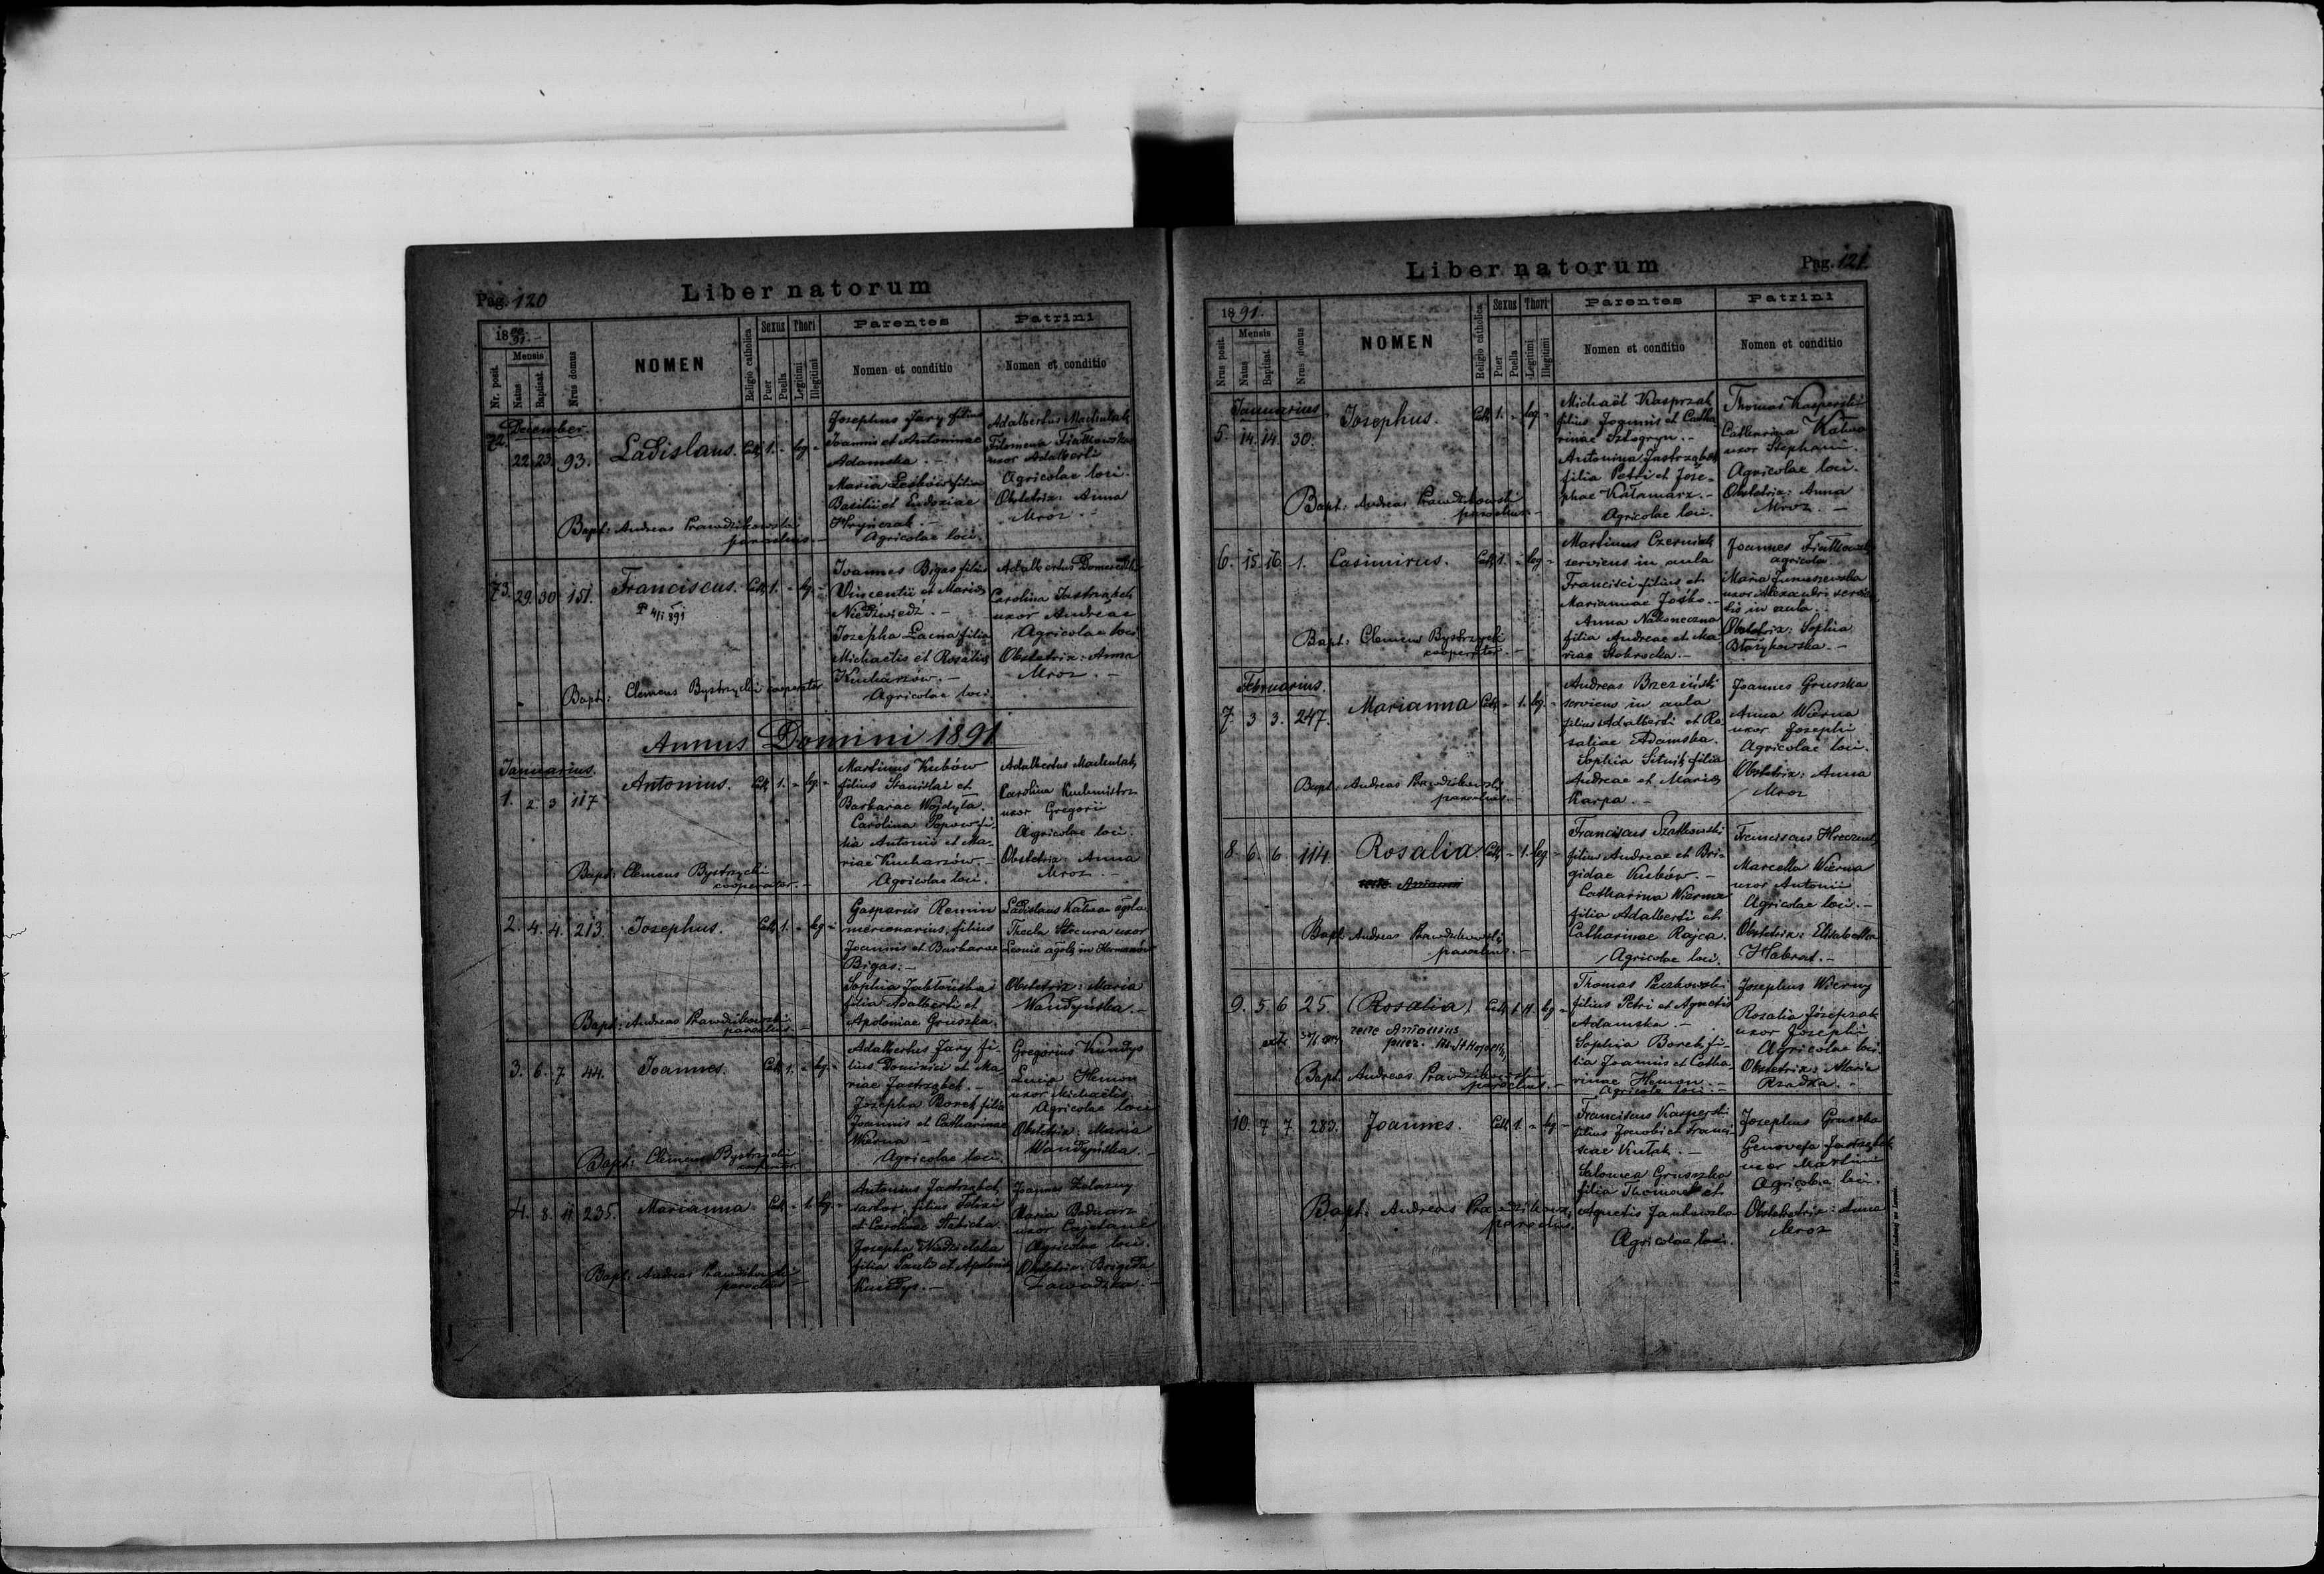 Pag. 120
Liber natorum
18 90/91.
Nr. posit.
Mensis
Natus
Baptisat.
Nrus domus
NOMEN
Religio catholica
Sexus
Puer
Puella
Thori
Legitimi
Illegitimi
Parentes
Nomen et conditio
Patrini
Nomen et conditio
December.
72. 22. 23. 93. Ladislaus. Cath. 1. - leg. -
Josephus Jary filius
Joannis et Antoninae
Adamska. -
Maria Leśków filia
Basilii et Eudoxiae
Hryńczak. -
Agricolae loci.
Adalbertus
Filomena Fiałkowska
uxor Adalberti
Agricolae loci.
Obstetrix: Anna
Mroz. -
Bapt: Andreas Prawdzikowski
parochus. -
73. 29. 30. 151. Franciscus. Cath. 1. - leg. -
4/I 891
Joannes Bigas filius
Vincentii et Mariae
Niedźwiedz. -
Josepha Łacna filia
Michaelis et Rosaliae
Kucharzów. -
Agricolae loci.
Adalbertus
Carolina Jastrząbek
uxor Andreae
Agricolae loci
Obstetrix: Anna
Mroz. -
Bapt: Clemens Bystrzycki cooperator
Annus Domini 1891
Januarius.
1. 2. 3 117 Antonius. Cath. 1. - leg. -
Martinus Kubów
filius Stanislai et
Barbarae Wojdyła.
Carolina Popow fi-
lia Antonii et Ma-
riae Kucharzów. -
Agricolae loci.
Adalbertus
Carolina Kuchmistrz
uxor Gregorii
Agricolae loci.
Obstetrix: Anna
Mroz. -
Bapt: Clemens Bystrzycki
cooperator. -
2. 4. 4. 213. Josephus. Cath. 1. - leg. -
Gasparus Remin
mercenarius, filius
Joannis et Barbarae
Bigas. -
Sophia Jabłońska
filia Adalberti et
Apoloniae Gruszka.
Ladislaus Katwa
Thecla uxor
Leonis
Obstetrix: Maria
Wandyńska. -
Bapt: Andreas Prawdzikowski
parochus. -
3. 6. 7 44. Joannes. Cath. 1. - leg. -
Adalbertus Jary fi-
lius Dominici et Ma-
riae Jastrząbek. -
Josepha Borek filia
Joannis et Catharinae
Wierna. -
Agricolae loci.
Gregorius Kundys
Lucia Hemon
uxor Michaelis
Agricolae loci
Obstetrix: Maria
Wandyńska. -
Bapt: Clemens Bystrzycki
cooperator
4. 8. 11. 235. Marianna. Cath. - 1. leg. -
Antonius Jastrząbek
sartor, filius Felixi
et Carolinae
Josepha Niedzielska
filia Pauli et Apoloniae
Kundys. -
Joannes Zelazny
Maria Bednarz
uxor Cajetani
Agricolae loci.
Obstetrix: Brigida
Zawadzka. -
Bapt: Andreas Prawdzikowski
parochus -
Liber natorum
Pag. 121.
18 91.
Nrus posit.
Mensis
Natus
Baptisat.
Nrus domus
NOMEN
Religio catholica
Sexus
Puer
Puella
Thori
Legitimi
Illegitimi
Parentes
Nomen et conditio
Patrini
Nomen et conditio
Januarius.
5. 14. 14. 30. Josephus. Cath. 1. - leg. -
Michaël Kasprzak
filius Joannis et Catha
rinae
Antonina Jastrząbek
filia Petri et Jose-
phae Kałamarz. -
Agricolae loci.
Thomas Kasperski
Catharina Katwa
uxor Stephani.
Agricolae loci.
Obstetrix: Anna
Mroz. -
Bapt: Andreas Prawdzikowski
parochus. -
6. 15. 16. 1. Casimirus. Cath. 1. - leg. -
Martinus Czerniak
serviens in aula
Francisci filius et
Mariannae Jośko. -
Anna Nakoneczna
filia Andreae et Ma
riae
Joannes Fiałkowski
agricola.
Maria Januszewska
uxor Alexandri servien
tis in aula.
Obstetrix: Sophia
Błażykowska. -
Bapt: Clemens Bystrzycki
cooperator. -
Februarius.
7. 3 3. 247. Marianna Cath. - 1. leg. -
Andreas Brzeziński
serviens in aula
filius Adalberti et Ro
saliae Adamska.
Sophia Sitnik filia
Andreae et Mariae
Karpa. -
Joannes Gruszka
Anna Wierna
uxor Josephi
Agricolae loci.
Obstetrix: Anna
Mroz
Bapt: Andreas Prawdzikowski
parochus. -
8. 6. 6. 114. Rosalia. Cath. - 1. leg. -
Franciscus Szatkowski
filius Andreae et Bri-
gidae Kubów. -
Catharina Wierna
filia Adalberti et
Catharinae Rajca.
Agricolae loci.
Franciscus
Marcella Wierna
uxor Antonii
Agricolae loci. -
Obstetrix: Elisabetha
Habrat. -
Bapt: Andreas Prawdzikowski
parochus. -
9. 5 6 25. (Rosalia). Cath. leg. -
recte Antonius
puer.
Thomas
filius Petri et Agnetis
Adamska. -
Sophia Borek fi-
lia Joannis et Catha
rinae Hemon. -
Agricolae loci. -
Josephus Wierny
Rosalia Józefczak
uxor Josephi
Agricolae loci.
Obstetrix: Maria
Rzadka. -
Bapt: Andreas Prawdzikowski
parochus. -
10. 7 7. 283. Joannes. Cath. 1. - leg. -
Franciscus Kasperski
filius Jacobi et Franci-
scae Kułak. -
Salomea Gruszka
filia Thomae et
Agnetis Jankowska
Agricolae loci.
Josephus Gruszka
Genovefa Jastrząbek
uxor Martini
Agricolae loci.
Obstetrix: Anna
Mroz
Bapt: Andreas Prawdzikowski
parochus.